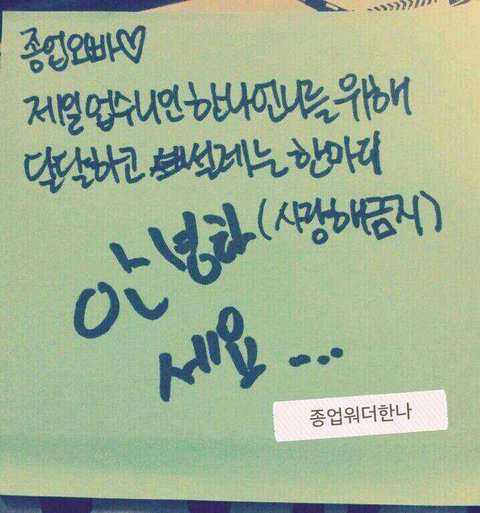 종업오빠♡
제일 업수니인 한나언니를 위해
달달하고 설레는 한마디
(사랑해금지)
안녕하
세요...
종업워더한나